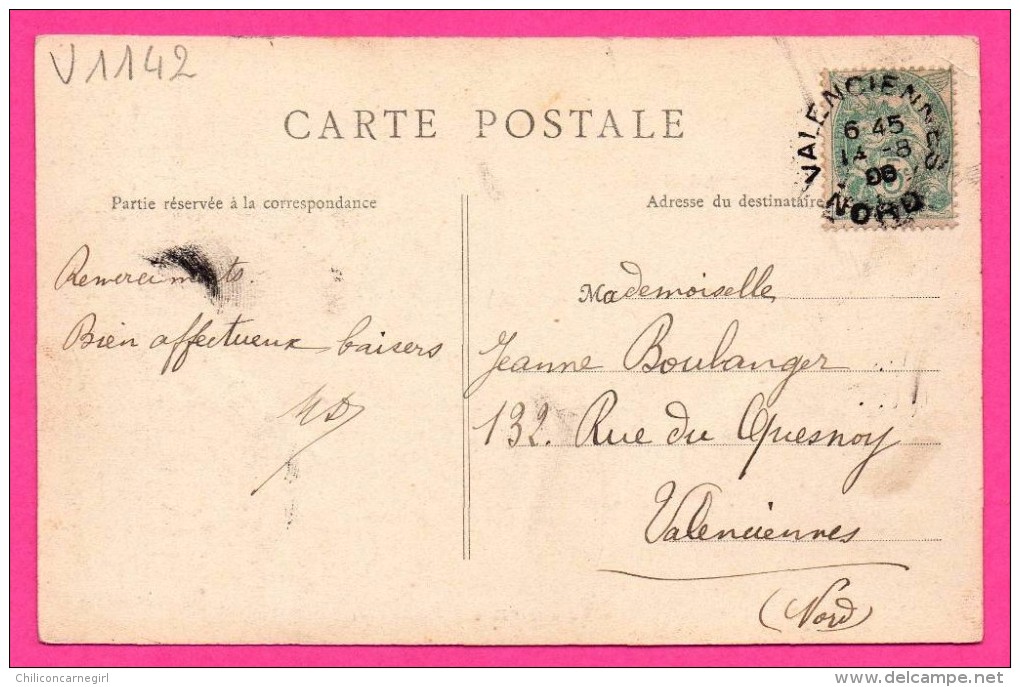 V1142
CARTE POSTALE
Partie réservée à la correspondance
Adresse du destinataire
VALENCIENNES
6 45
14 -8
NORD
Remerciments.
Bien affectueux baisers
Mademoiselle
Jeanne Boulanger
132. Rue du Quesnoy
Valenciennes
(Nord)
Chiliconcarnegirl
delcampe.net